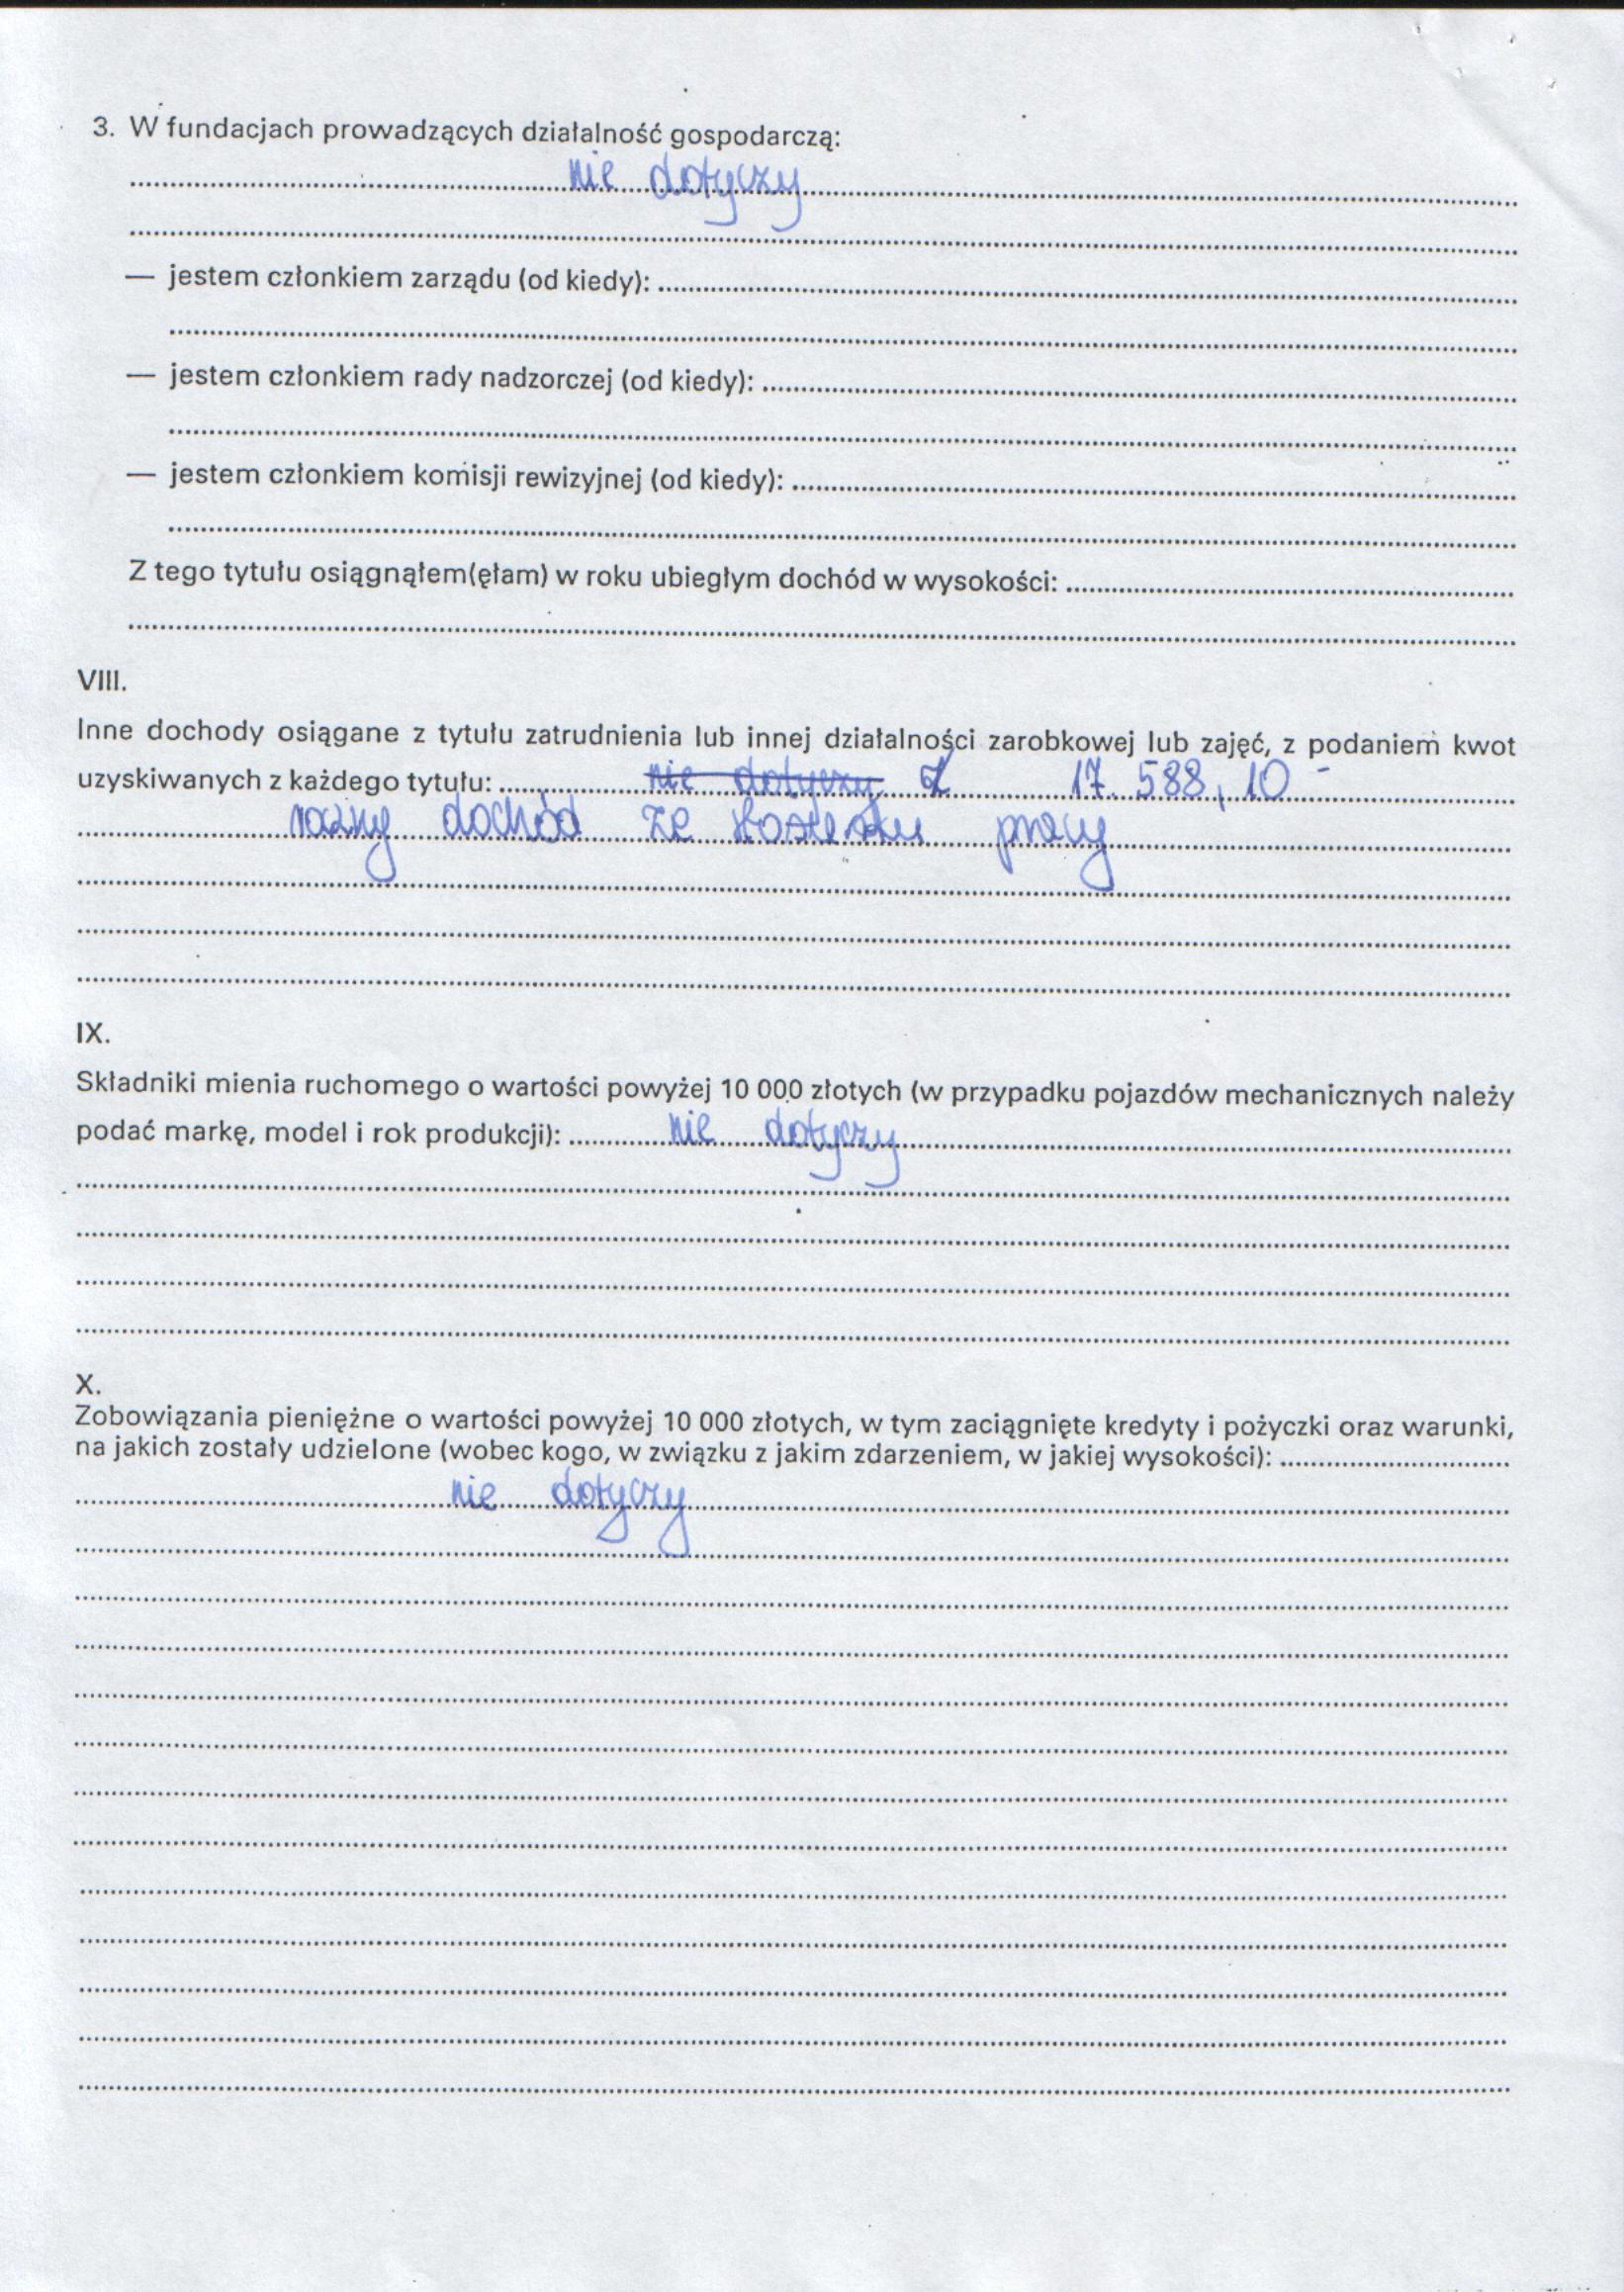 3. W fundacjach prowadzących działalność gospodarczą:
nie dotyczy
— jestem członkiem zarządu (od kiedy):
— jestem członkiem rady nadzorczej (od kiedy):
— jestem członkiem komisji rewizyjnej (od kiedy):
Z tego tytułu osiągnąłem(ęłam) w roku ubiegłym dochód w wysokości:
VIII.
Inne dochody osiągane z tytułu zatrudnienia lub innej działalności zarobkowej lub zajęć, z podaniem kwot
uzyskiwanych z każdego tytułu: nie dotyczy 17.588,10 -
dochód ze pracy
IX.
Składniki mienia ruchomego o wartości powyżej 10 000 złotych (w przypadku pojazdów mechanicznych należy
podać markę, model i rok produkcji): nie dotyczy
X.
Zobowiązania pieniężne o wartości powyżej 10 000 złotych, w tym zaciągnięte kredyty i pożyczki oraz warunki,
na jakich zostały udzielone (wobec kogo, w związku z jakim zdarzeniem, w jakiej wysokości):
nie dotyczy